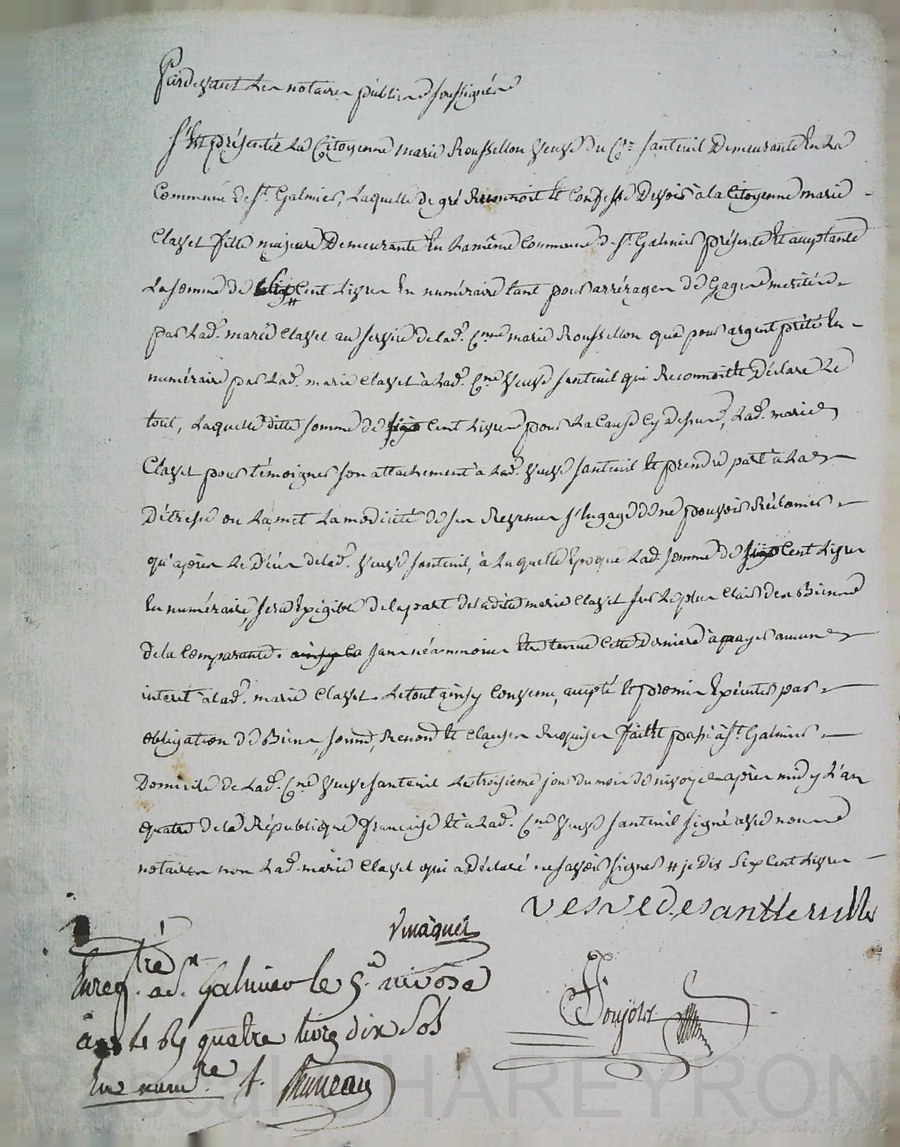 Pardevant les notaires publics soussignés
s'est présentée la Citoyenne marie Roussellon veuve du Cen. santeuil demeurante En La
Commune de st. Galmier, Laquelle de gré Reconnoit et Confesse Devoir à la Citoyenne marie
Clavel fille majeure Demeurante En La même Commune de st. Galmier présente et acceptante
La somme de six # Cent Livres En numéraire tant pour arrérages de Gages mérités
par Lad. marie Clavel au service de lad. Cnne marie Roussellon que pour argent prêté En
numéraire par Lad. marie Clavel à Lad. Cne veuve santeuil qui Reconnoit et Déclare Le
tout, Laquelle ditte somme de six Cent Livres pour La Cause Cy dessus, Lad. marie
Clavel pour témoigner son attachement à Lad. veuve santeuil et prendre part à La
Détresse ou La met La modicité de ses Revenus s'Engage de ne pouvoir Réclamer
qu'après Le Décès de lad. veuve santeuil, à Laquelle Epoque Lad. somme de six Cent Livres
En numéraire, sera Exigible de la part de ladite marie Clavel sur Le plus Clair des Biens
de la Comparante, sans néanmoins Etre tenue Cette Derniere à payer aucuns
interet à lad. marie Clavel. Le tout ainsy Convenu, accepté et promis Exécuter par
obligation de Biens, soums, Renond et Clauses Requises fait et passé à st. Galmier
Domicile de Lad. Cne veuve santeuil Le troisieme jour du mois de nivose après midy L'an
quatre de la République francaise et à Lad. Cne veuve santeuil signé avec nous
notaires non Lad. marie Clavel qui a Déclaré ne savoir signer # je dis six Cent Livres
vesve de santteuille
Enregtré. a st. Galmier le 5e. nivose
an 4 quatre livre dix sols
En numre.